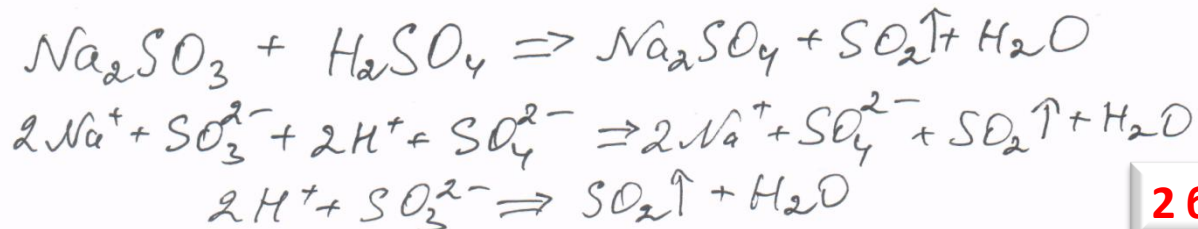 Na₂SO₃ + H₂SO₄ ⇒ Na₂SO₄ + SO₂↑ + H₂O
2Na⁺ + SO₃²⁻ + 2H⁺ + SO₄²⁻ ⇒ 2Na⁺ + SO₄²⁻ + SO₂↑ + H₂O
2H⁺ + SO₃²⁻ ⇒ SO₂↑ + H₂O
2